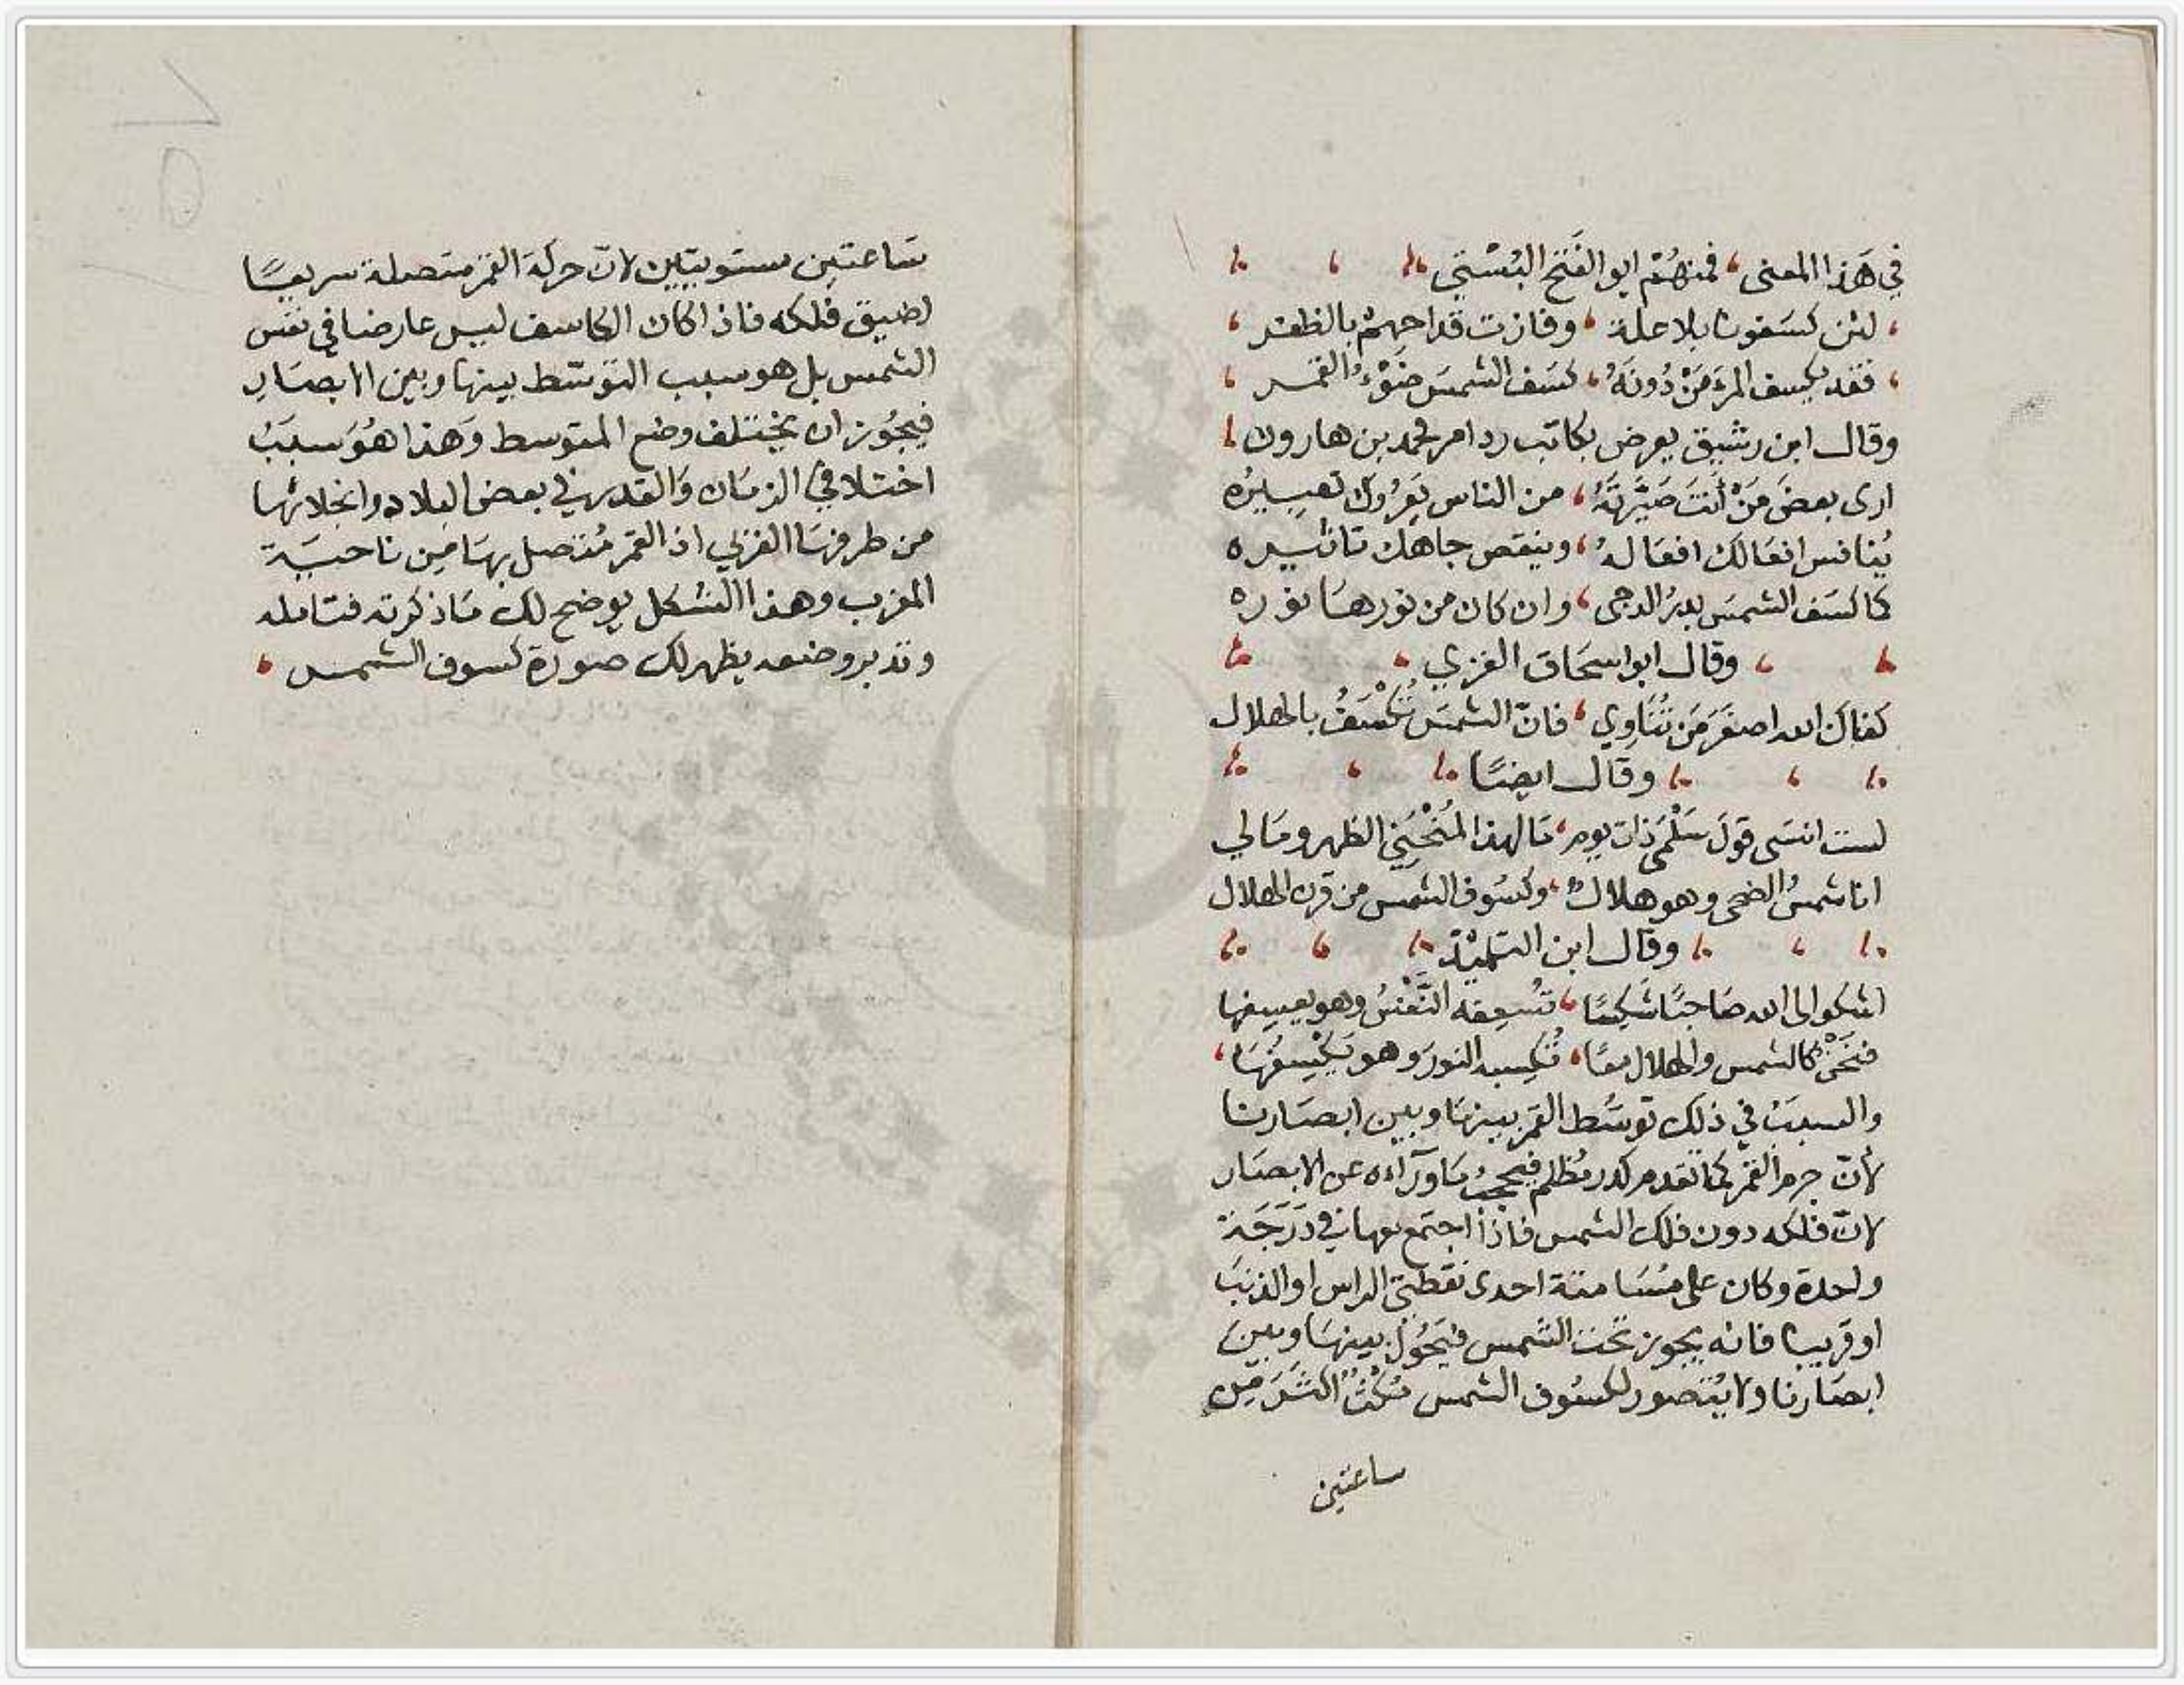 في هَذا المعنى، فمنهُمْ ابو الفَتح البُسْتي
لئن كسَفونا بلا علة، وفازت قداحهمْ بالظفر
فقد يكسف المرَْ مَنْ دُونَهُ، كسَف الشمسَ ضَوْءُ القمر
وقال ابن رشيق يعرض بكاتب ردامر محمد بن هارون
ارى بعضَ مَنْ أنتَ صَيَّرتَهُ، من الناس يَعرُوك تعييره
يُنافس افعَالك افعَالهُ، وينقص جاهك تاثيره
كما كسَف الشمسَ بدرُ الدجى، وان كان من نورهَا نوره
وقال ابو اسحَاق الغزي
كفاك الله اصغَرَ مَن تُنَاوِي، فانّ الشمسَ تُكْسَفُ بالهلال
وقال ايضًا
لست انسَى قولَ سَلْمَى ذات يوم، مَا لهذا المُنْحَنِي الظهر ومَا لي
انا شمسُ الضحى وهو هلالٌ، وكسُوف الشمس من قرن الهلال
وقال ابن التلميْذ
اشكو الى الله صَاحبًا شَكِسًا، تُسْعِفه النَّفْسُ وهو يعسِفها
فنَحْنُ كالشمس والهلال معًا، تُكسِبه النورَ وهو يَكْسِفُهَا
والسببُ في ذلك توسُّط القمر بينهَا وبين ابصَارنا
لأنّ جرم القمر كما تقدم كدر مُظلم فيحجبُ مَا ورَآءه عن الابصَار
لانّ فلكه دون فلك الشمس فاذا اجتمع بها في دَرَجَة
واحدة وكان على مسَامتة احدى نقطتي الراس او الذنبَ
او قريبا فانه يجوز تحت الشمس فيَحُول بينهَا وبين
ابصَارنا ولا يُتصور لكسُوف الشمس مُكْثٌ اكثَرَ مِن
ساعتين
سَاعتين مستويتين لانّ حركة القمر متصلة سريعًا
لضيق فلكه فاذا كان الكاسف ليس عارضا في نفس
الشمس بل هو سبب التوسّط بينها وبين الابصَارِ
فيجُوز ان يختلف وضع المتوسط وَهذا هُوَ سببُ
اختلافي الزمَان وَالقدر في بعض البلاد وانجلائها
من طرفهَا الغربي اذ القمر مُتصل بهَا مِن ناحيَة
المغرب وهذا الشكل يوضح لك مَا ذكرته فتامله
وتدبر وضعه يظهر لك صورة كسوف الشمس